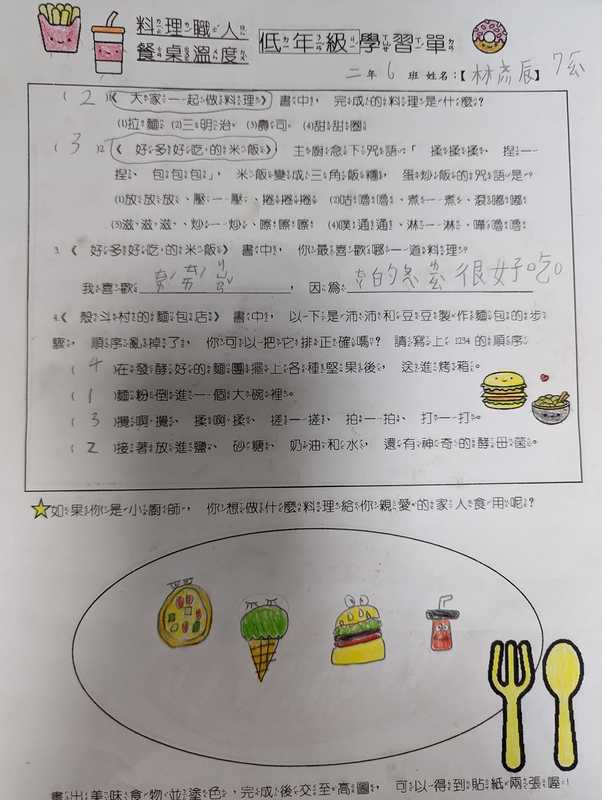 料理職人
餐桌溫度
低年級學習單
二年6班 姓名:【林彥辰】7公
( 2 )1.《大家一起做料理》書中, 完成的料理是什麼?
(1)拉麵 (2)三明治 (3)壽司 (4)甜甜圈
( 3 )2.《好多好吃的米飯》, 主廚念下咒語「揉揉揉、捏一
捏、包包包」, 米飯變成三角飯糰, 蛋炒飯的咒語是?
(1)放放放、壓一壓、捲捲捲 (2)咕嚕嚕、煮一煮、滾嘟嘟
(3)滋滋滋、炒一炒、嚓嚓嚓 (4)噗通通、淋一淋、嘩嚕嚕
3.《好多好吃的米飯》書中, 你最喜歡哪一道料理?
我喜歡 , 因為 的 很好吃。
4.《殼斗村的麵包店》書中, 以下是沛沛和豆豆製作麵包的步
驟, 順序亂掉了, 你可以把它排正確嗎? 請寫上1234的順序
( 4 )在發酵好的麵團擺上各種堅果後, 送進烤箱。
( 1 )麵粉倒進一個大碗裡。
( 3 )攪啊攪、揉啊揉、搓一搓、拍一拍、打一打。
( 2 )接著放進鹽、砂糖、奶油和水, 還有神奇的酵母菌。
如果你是小廚師, 你想做什麼料理給你親愛的家人食用呢?
畫出美味食物並塗色,完成後交至高圖, 可以得到貼紙兩張喔!